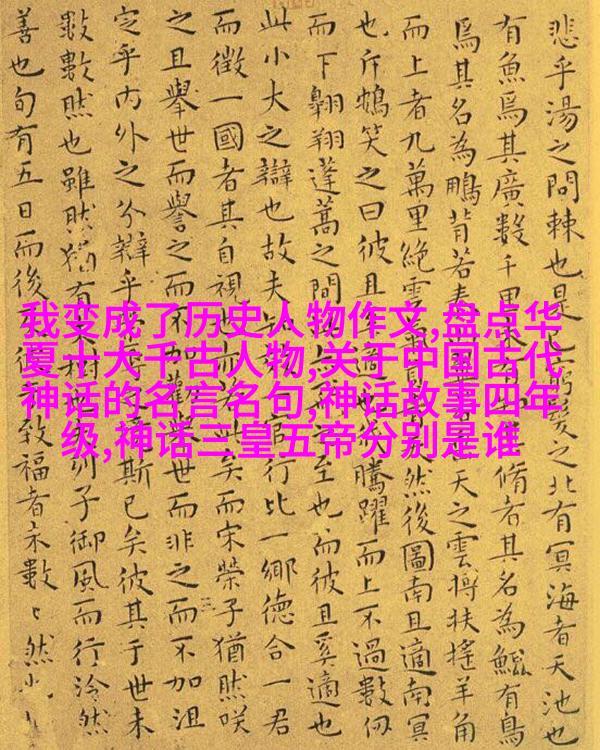 悲乎湯之問棘也是窮髮之北有冥海者天池也
有魚焉其廣數千里未脩者其名為鯤有鳥
焉其名為鵬背若泰天之雲摶扶搖羊角
而上者九萬里絕雲然後圖南且適南冥
也斥鴳笑之曰彼且適也騰躍而上不過數仞
而下翱翔蓬蒿之間之至也而彼且奚適也
此小大之辯也故夫官行比一鄉德合一君
而徵一國者其自視也亦此矣而宋榮子猶然咲
之且舉世而譽之而不加世而非之而不加沮
定乎內外之分辯乎斯已矣彼其于世未
數數然也雖然猶有樹也列子御風而行泠然
善也旬有五日而後致福者未數〻然也
我变成了历史人物作文,盘点华
夏十大千古人物,关于中国古代
神话的名言名句,神话故事四年
级,神话三皇五帝分别是谁